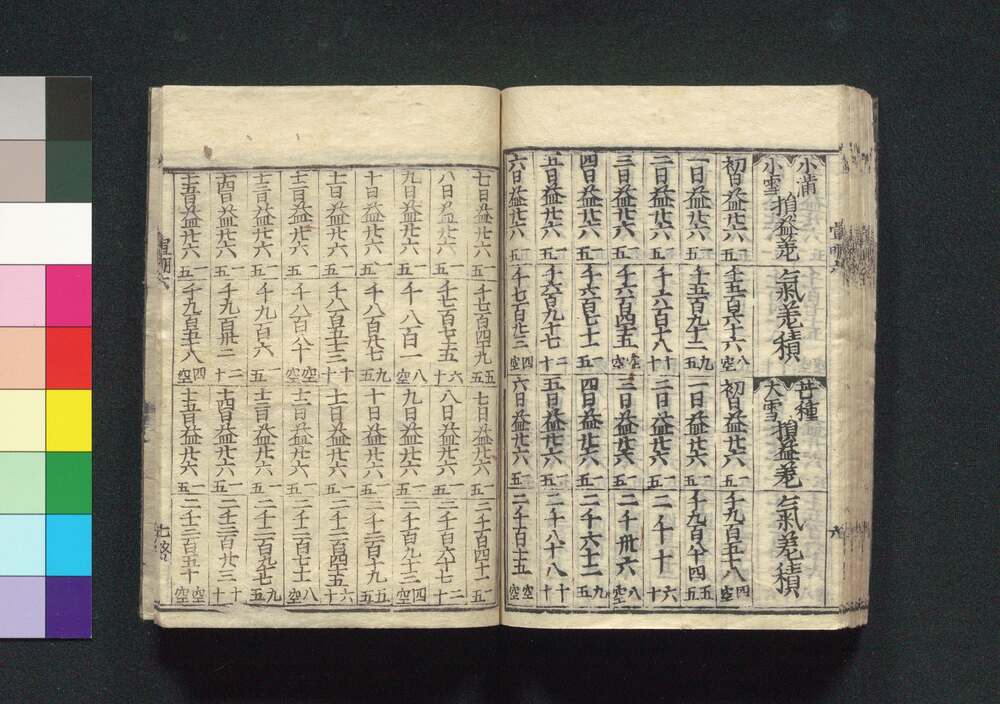 宣明六 六
小滿 小雪 損益差 氣差積 芒種 大雪 損益差 氣差積
初日益廿六 一五 千五百六十六 八空 初日益廿六 一五 千九百五十八 四空
一日益廿六 一五 千五百九十二 九五 一日益廿六 一五 千九百八十四 五五
二日益廿六 一五 千六百十八 十十 二日益廿六 一五 二千十 六十
三日益廿六 一五 千六百四十五 空空 三日益廿六 一五 二千卅六 八空
四日益廿六 一五 千六百七十一 一五 四日益廿六 一五 二千六十二 九五
五日益廿六 一五 千六百九十七 二十 五日益廿六 一五 二千八十八 十十
六日益廿六 一五 千七百廿三 四空 六日益廿六 一五 二千百十五 空空
七日益廿六 一五 千七百四十九 五五 七日益廿六 一五 二千百四十一 一五
八日益廿六 一五 千七百七十五 六十 八日益廿六 一五 二千百六十七 二十
九日益廿六 一五 千八百一 八空 九日益廿六 一五 二千百九十三 四空
十日益廿六 一五 千八百廿七 九五 十日益廿六 一五 二千二百十九 五五
十一日益廿六 一五 千八百五十三 十十 十一日益廿六 一五 二千二百四十五 六十
十二日益廿六 一五 千八百八十 空空 十二日益廿六 一五 二千二百七十一 八空
十三日益廿六 一五 千九百六 一五 十三日益廿六 一五 二千二百九十七 九五
十四日益廿六 一五 千九百卅二 二十 十四日益廿六 一五 二千三百廿三 十十
十五日益廿六 一五 千九百五十八 四空 十五日益廿六 一五 二千三百五十 空空